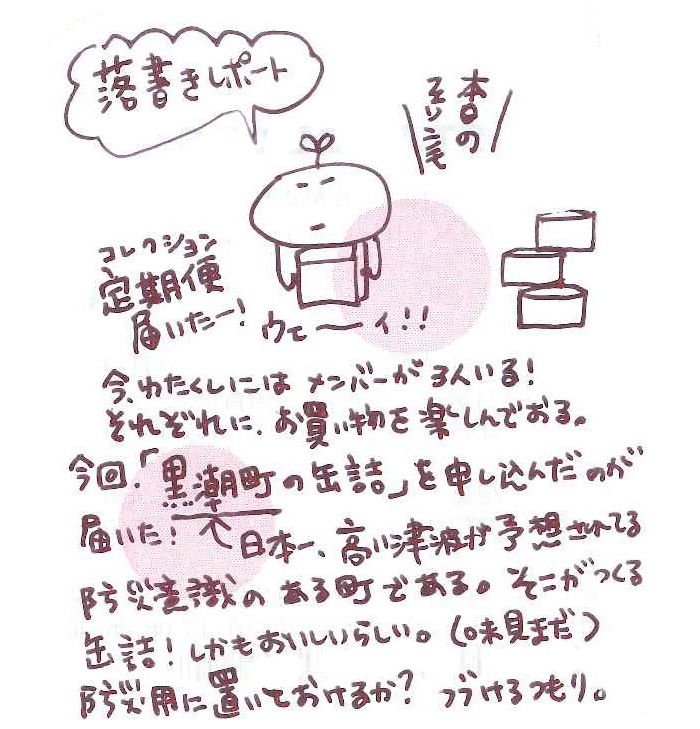 落書きレポート
本日の
そいつも
コレクション
定期便
届いたー!
ウェーイ!!
今、わたくしにはメンバーが3人いる!
それぞれに、お買い物を楽しんでおる。
今回、「黒潮町の缶詰」を申し込んだのが
届いた!
日本一、高い津波が予想されてる
防災意識のある町である。そこがつくる
缶詰!しかもおいしいらしい。(味見まだ)
防災用に置いておけるか?つづけるつもり。